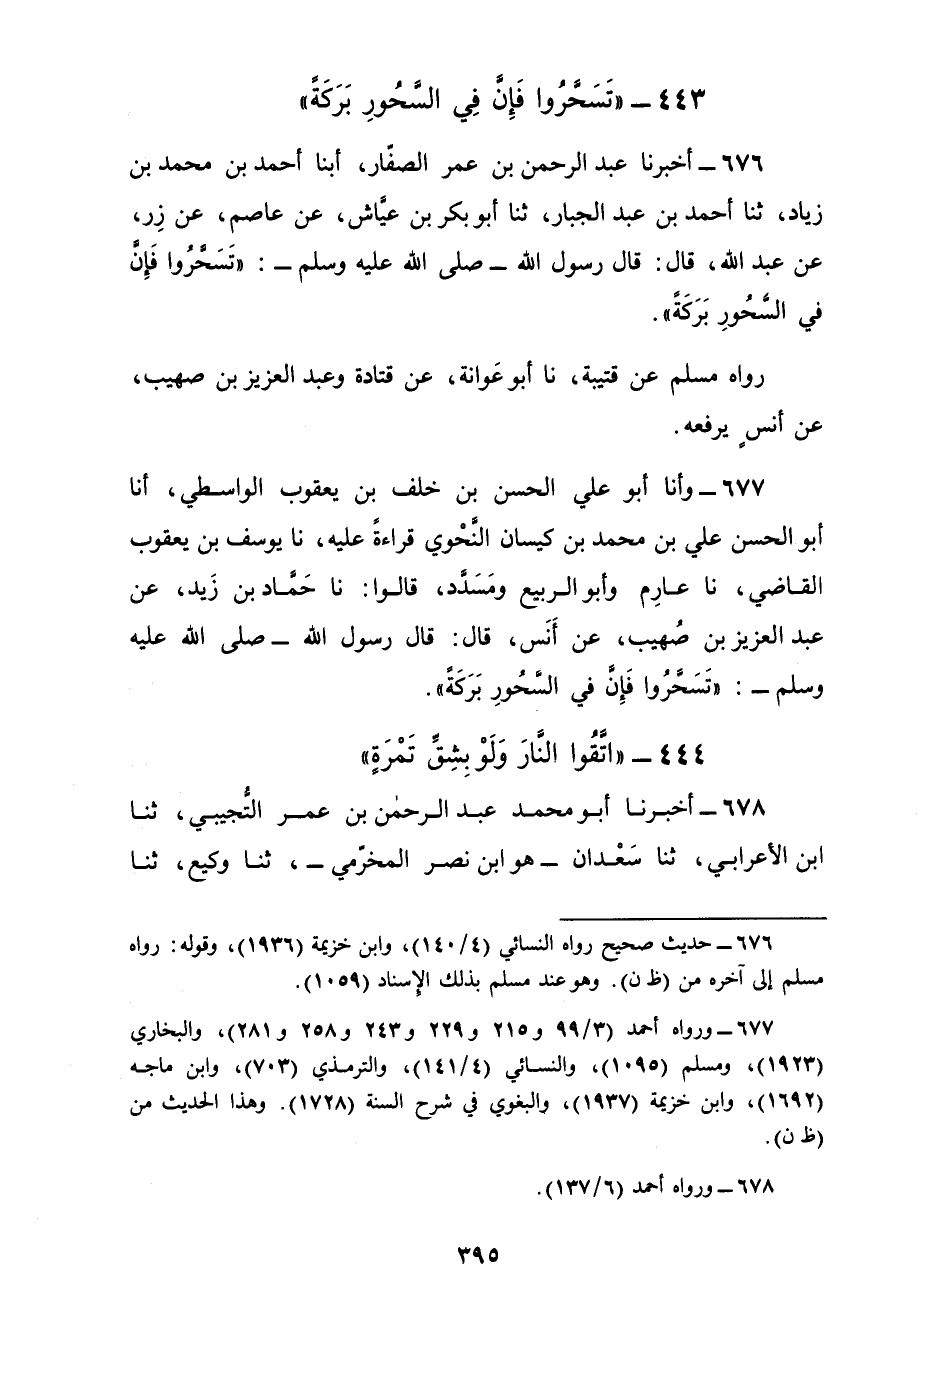 ٤٤٣ ــ «تَسَحَّرُوا فَإِنَّ فِي السَّحُورِ بَرَكَةً»
٦٧٦ ــ أخبرنا عبد الرحمن بن عمر الصفّار، أبنا أحمد بن محمد بن
زياد، ثنا أحمد بن عبد الجبار، ثنا أبو بكر بن عيَّاش، عن عاصم، عن زِر،
عن عبد الله، قال: قال رسول الله ــ صلى الله عليه وسلم ــ : «تَسَحَّرُوا فَإِنَّ
في السَّحُورِ بَرَكَةً».
رواه مسلم عن قتيبة، نا أبو عَوانة، عن قتادة وعبد العزيز بن صهيب،
عن أنسٍ يرفعه.
٦٧٧ ــ وأنا أبو علي الحسن بن خلف بن يعقوب الواسطي، أنا
أبو الحسن علي بن محمد بن كيسان النَّحْوي قراءةً عليه، نا يوسف بن يعقوب
القاضي، نا عارِم وأبو الربيع ومَسَدَّد، قالوا: نا حَمَّاد بن زَيد، عن
عبد العزيز بن صُهيب، عن أَنَس، قال: قال رسول الله ــ صلى الله عليه
وسلم ــ : «تَسَحَّرُوا فَإِنَّ في السَّحُورِ بَرَكَةً».
٤٤٤ ــ «اتَّقُوا النَّارَ وَلَوْ بِشِقِّ تَمْرَةٍ»
٦٧٨ ــ أخبرنا أبو محمد عبد الرحمٰن بن عمر التُّجيبي، ثنا
ابن الأعرابي، ثنا سَعْدان ــ هو ابن نصر المخرّمي ــ، ثنا وكيع، ثنا
٦٧٦ ــ حديث صحيح رواه النسائي (١٤٠/٤)، وابن خزيمة (١٩٣٦)، وقوله: رواه
مسلم إلى آخره من (ظ ن). وهو عند مسلم بذلك الإسناد (١٠٥٩).
٦٧٧ ــ ورواه أحمد (٩٩/٣ و ٢١٥ و ٢٢٩ و ٢٤٣ و ٢٥٨ و ٢٨١)، والبخاري
(١٩٢٣)، ومسلم (١٠٩٥)، والنسائي (١٤١/٤)، والترمذي (٧٠٣)، وابن ماجه
(١٦٩٢)، وابن خزيمة (١٩٣٧)، والبغوي في شرح السنة (١٧٢٨). وهذا الحديث من
(ظ ن).
٦٧٨ ــ ورواه أحمد (١٣٧/٦).
٣٩٥